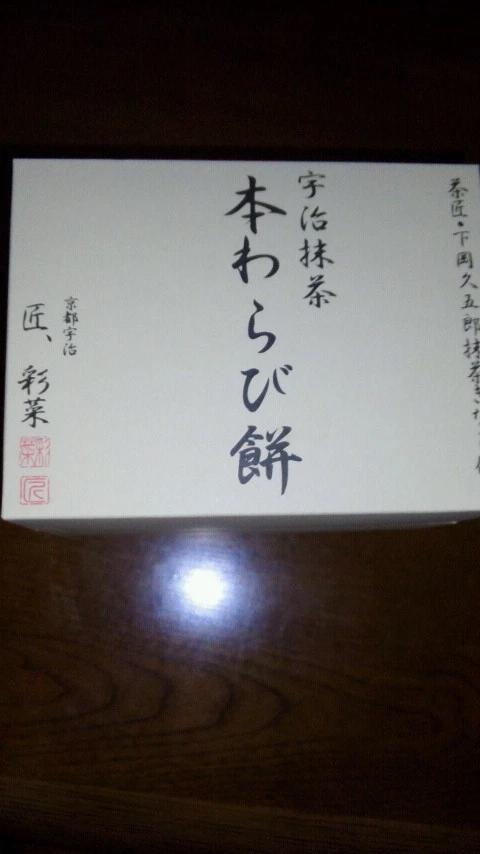 茶匠・下岡久五郎抹茶きな
宇治抹茶
本わらび餅
京都宇治
匠、彩菜
彩菜
匠